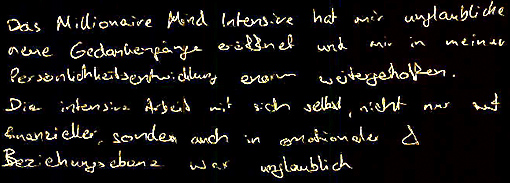 Das Millionaire Mind Intensive hat mir unglaubliche
neue Gedankengänge eröffnet und mir in meiner
Persönlichkeitsentwicklung enorm weitergeholfen.
Die intensive Arbeit mit sich selbst, nicht nur auf
finanzieller, sondern auch in emotionaler &
Beziehungsebene war unglaublich